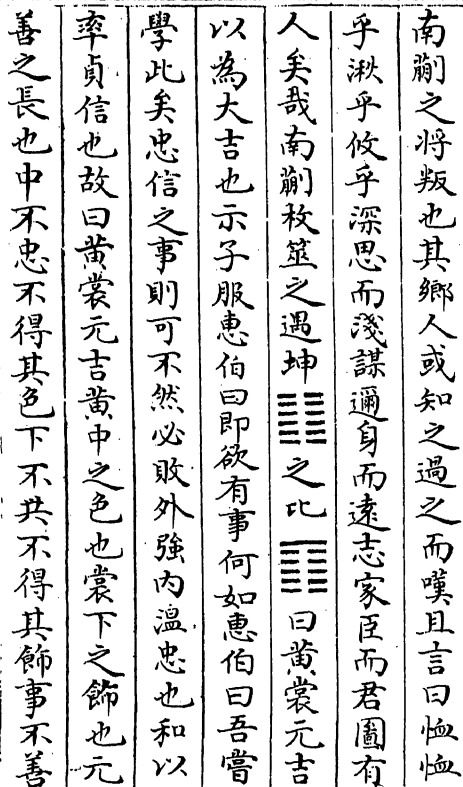 南蒯之将叛也其鄉人或知之過之而嘆且言曰恤恤
乎湫乎攸乎深思而淺謀邇身而遠志家臣而君圖有
人矣哉南蒯枚筮之遇坤䷁之比䷇曰黄裳元吉
以為大吉也示子服惠伯曰即欲有事何如惠伯曰吾嘗
學此矣忠信之事則可不然必敗外強内溫忠也和以
率貞信也故曰黄裳元吉黄中之色也裳下之飾也元
善之長也中不忠不得其色下不共不得其飾事不善